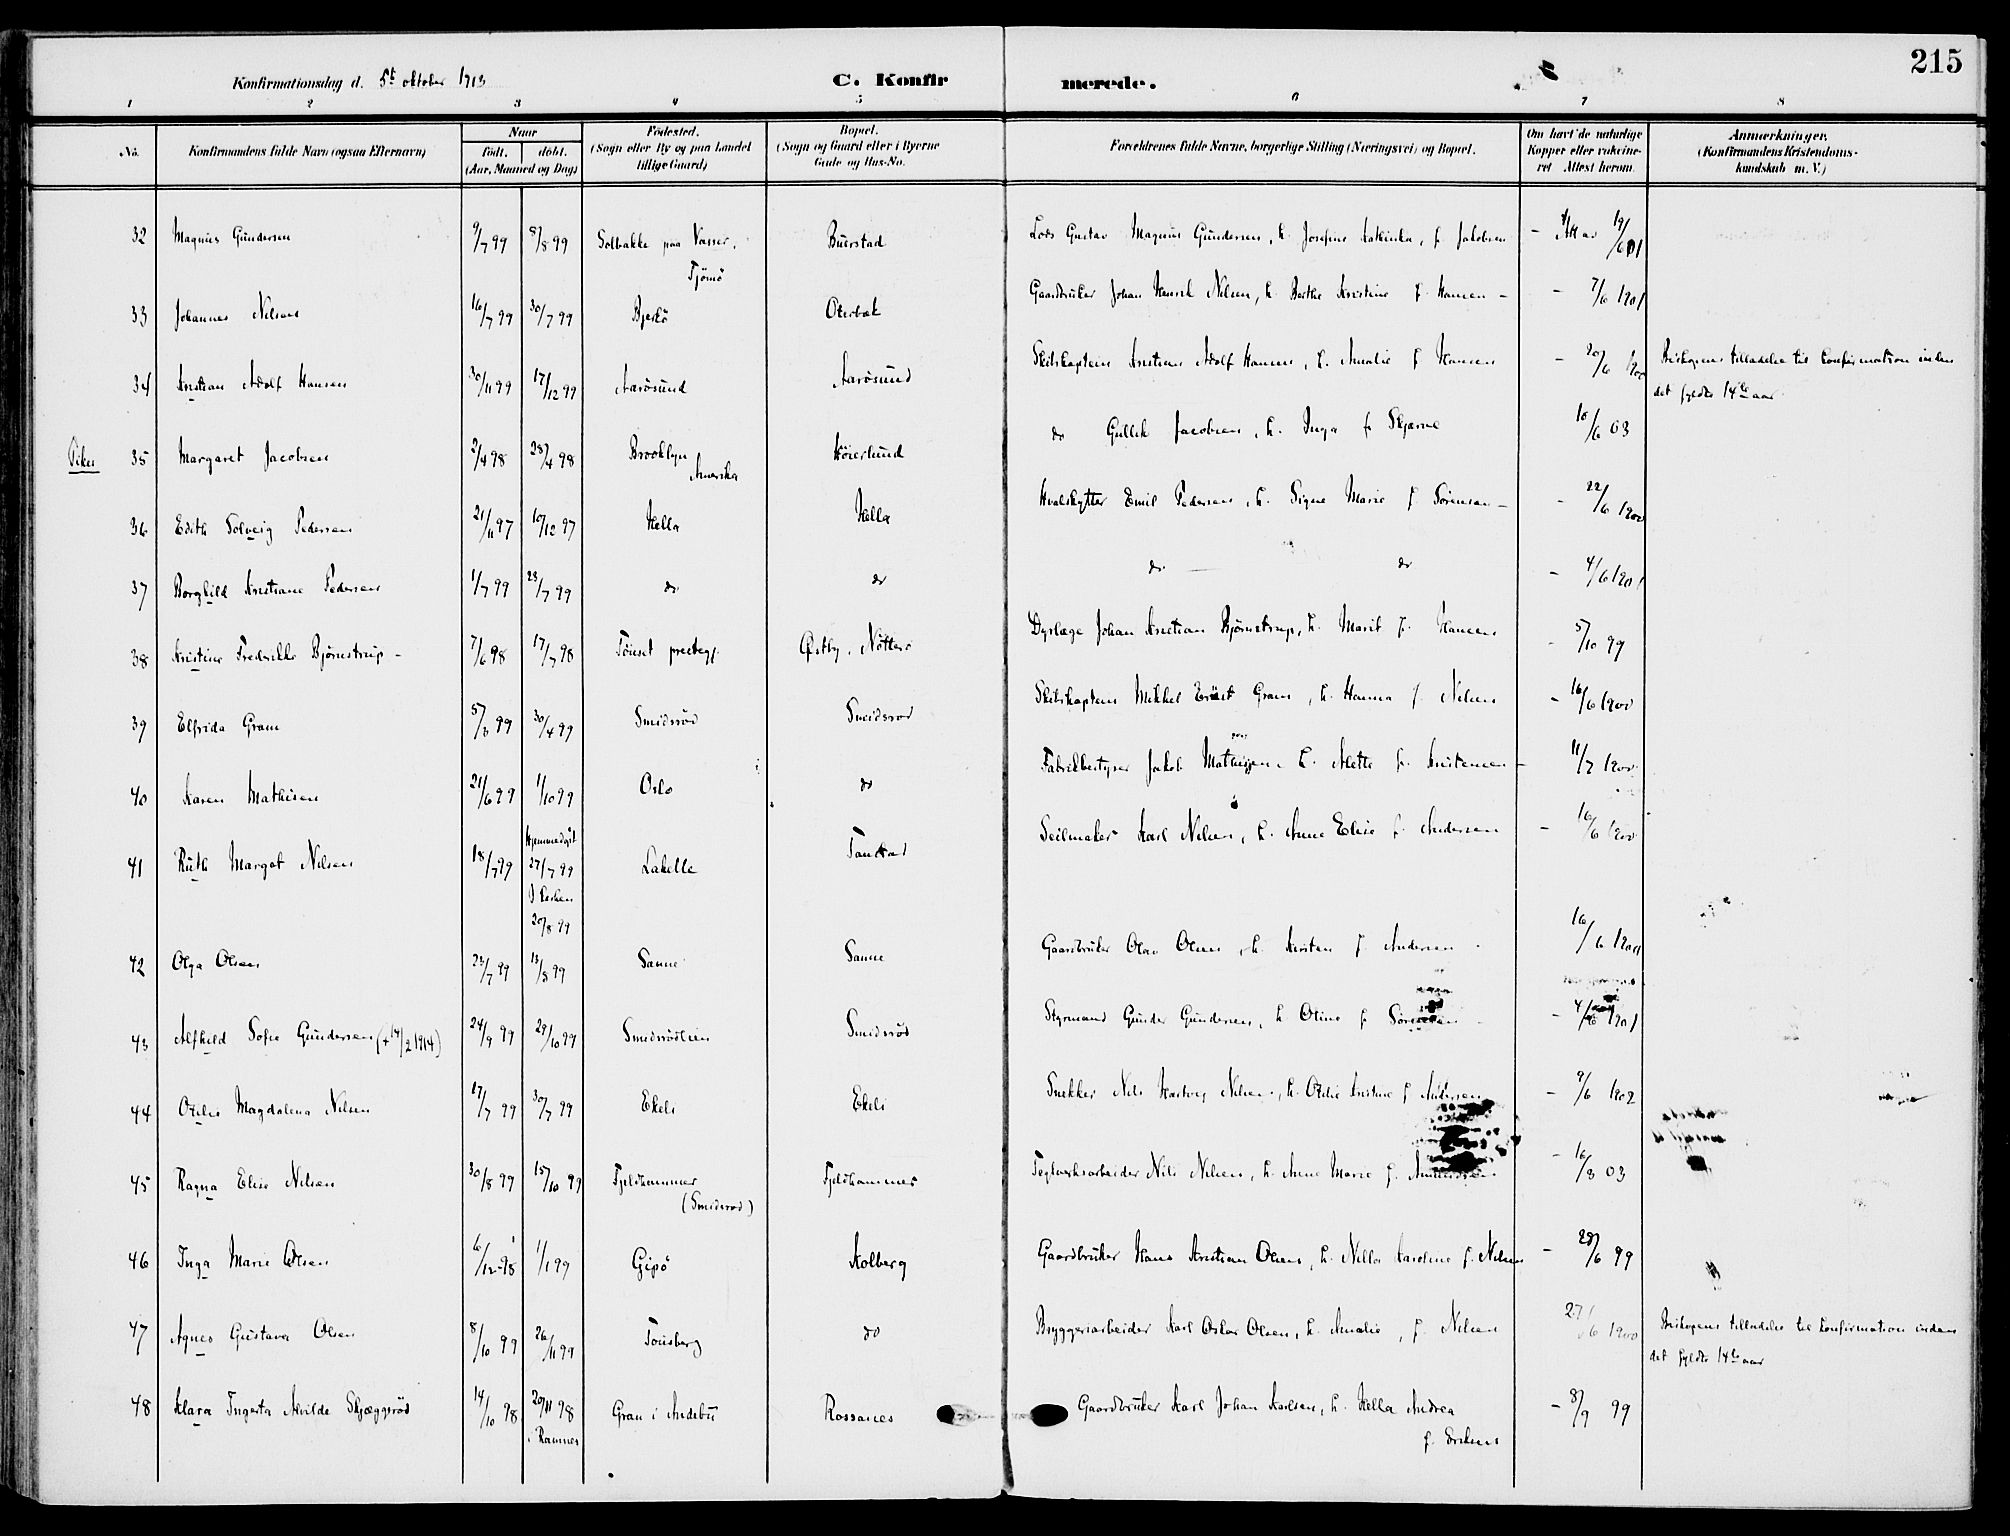 215
Konfirmationsdag d. 5t oktober 1913
C. Konfirmerede.
1 2 3 4 5 6 7 8
No.
Konfirmandens fulde Navn (ogsaa Efternavn)
Naar
født. døbt.
(Aar, Maaned og Dag)
Fødested.
(Sogn eller By og paa Landet
tillige Gaard)
Bopæl.
(Sogn og Gaard eller i Byerne
Gade og Hus-No.
Forældrenes fulde Navne, borgerlige Stilling (Næringsvei) og Bopæl.
Om havt de naturlige
Kopper eller vakcineret
Attest herom.
Anmærkninger.
(Konfirmandens Kristendoms-
kundskab m. V.)
32 Magnus Gundersen 9/7 99 8/8 99 Solbakke paa Vasser, Tjömö Buerstad Lods Gustav Magnus Gundersen, h. Josefine Kathinka, f. Jakobsen - 19/6 01
33 Johannes Nilsen 16/7 99 30/7 99 Bjerkö Oterbæk Gaardbruker Johan Henrik Nilsen, h. Berthe Kristine f. Hansen - 7/6 1901
34 Kristian Adolf Hansen 30/11 99 17/12 99 Aarösund Aarösund Skibskaptein Kristian Adolf Hansen, h. Amalie f Hansen - 20/6 1900 Biskopens tilladelse til konfirmation inden
det fyldte 14de aar
Piker 35 Margaret Jacobsen 2/4 98 28/4 98 Brooklyn Amerika Höierlund do Gullik Jacobsen, h. Inga f Skjærve 10/6 03
36 Edith Solveig Pedersen 21/11 97 10/12 97 Hella Hella Hvalskytter Emil Pedersen, h. Signe Marie f Sörensen - 22/6 1900
37 Borghild Kristiane Pedersen 1/7 99 23/7 99 do do do do - 4/6 1901
38 Kristine Fredrikke Bjørnstrup - 7/6 98 17/7 98 Tönset prestegj. Østby, Nötterö Dyrlæge Johan Kristian Bjørnstrup, h. Marit f. Hansen - 5/10 99
39 Elfrida Gram 5/3 99 30/4 99 Smidsröd Smidsröd Skibskaptein Mikkel Ernst Gram, h. Hanna f. Nilsen - 16/6 1900
40 Karen Mathisen 21/6 99 1/10 99 Oslo do Fabrikbestyrer Jakob Mathisen, h. Alette f. Kristensen - 11/7 1900
41 Ruth Margot Nilsen 18/7 99 Hjemmedöpt 27/7 99 I kirken 20/8 99 Lahelle Tanstad Seilmaker Karl Nilsen, h. Anne Elise f Andersen - 16/6 1900
42 Olga Olsen 23/7 99 13/8 99 Sanne Sanne Gaardbruker Olav Olsen, h. Kirsten f Andersen 16/6 1900
43 Alfhild Sofie Gundersen (+ 14/2 1914) 24/9 99 29/10 99 Smidsrödlien Smidsröd Styrmand Gunder Gundersen, h Oline f Sörensen - 4/6 1901
44 Otilie Magdalena Nilsen 17/7 99 30/7 99 Ekeli Ekeli Snekker Nils Hartvig Nilsen, h. Otilie Kristine f Andersen - 9/6 1902
45 Ragna Elise Nilsen 30/8 99 15/10 99 Fjeldhammer (Smidsröd) Fjeldhammer Teglverksarbeider Nils Nilsen, h. Anne Marie f. Amundsen - 16/3 03
46 Inga Marie Olsen 6/12 98 1/1 99 Gipö Kolberg Gaardbruker Hans Kristian Olsen, h. Nilla Karoline f. Nilsen - 28/6 99
47 Agnes Gustava Olsen 8/10 99 26/11 99 Tönsberg do Bryggeriarbeider Karl Oskar Olsen, h. Amalie, f. Nilsen 27/6 1900 Biskopens tilladelse til konfirmation inden
det fyldte 14de aar
48 Klara Ingerta Alvilde Skjæggeröd 14/10 98 20/11 98 i Ramnes Gran i Andebu Rossanes Gaardbruker Karl Johan Karlsen, h. Hella Andrea
f. Eriksen - 8/9 99